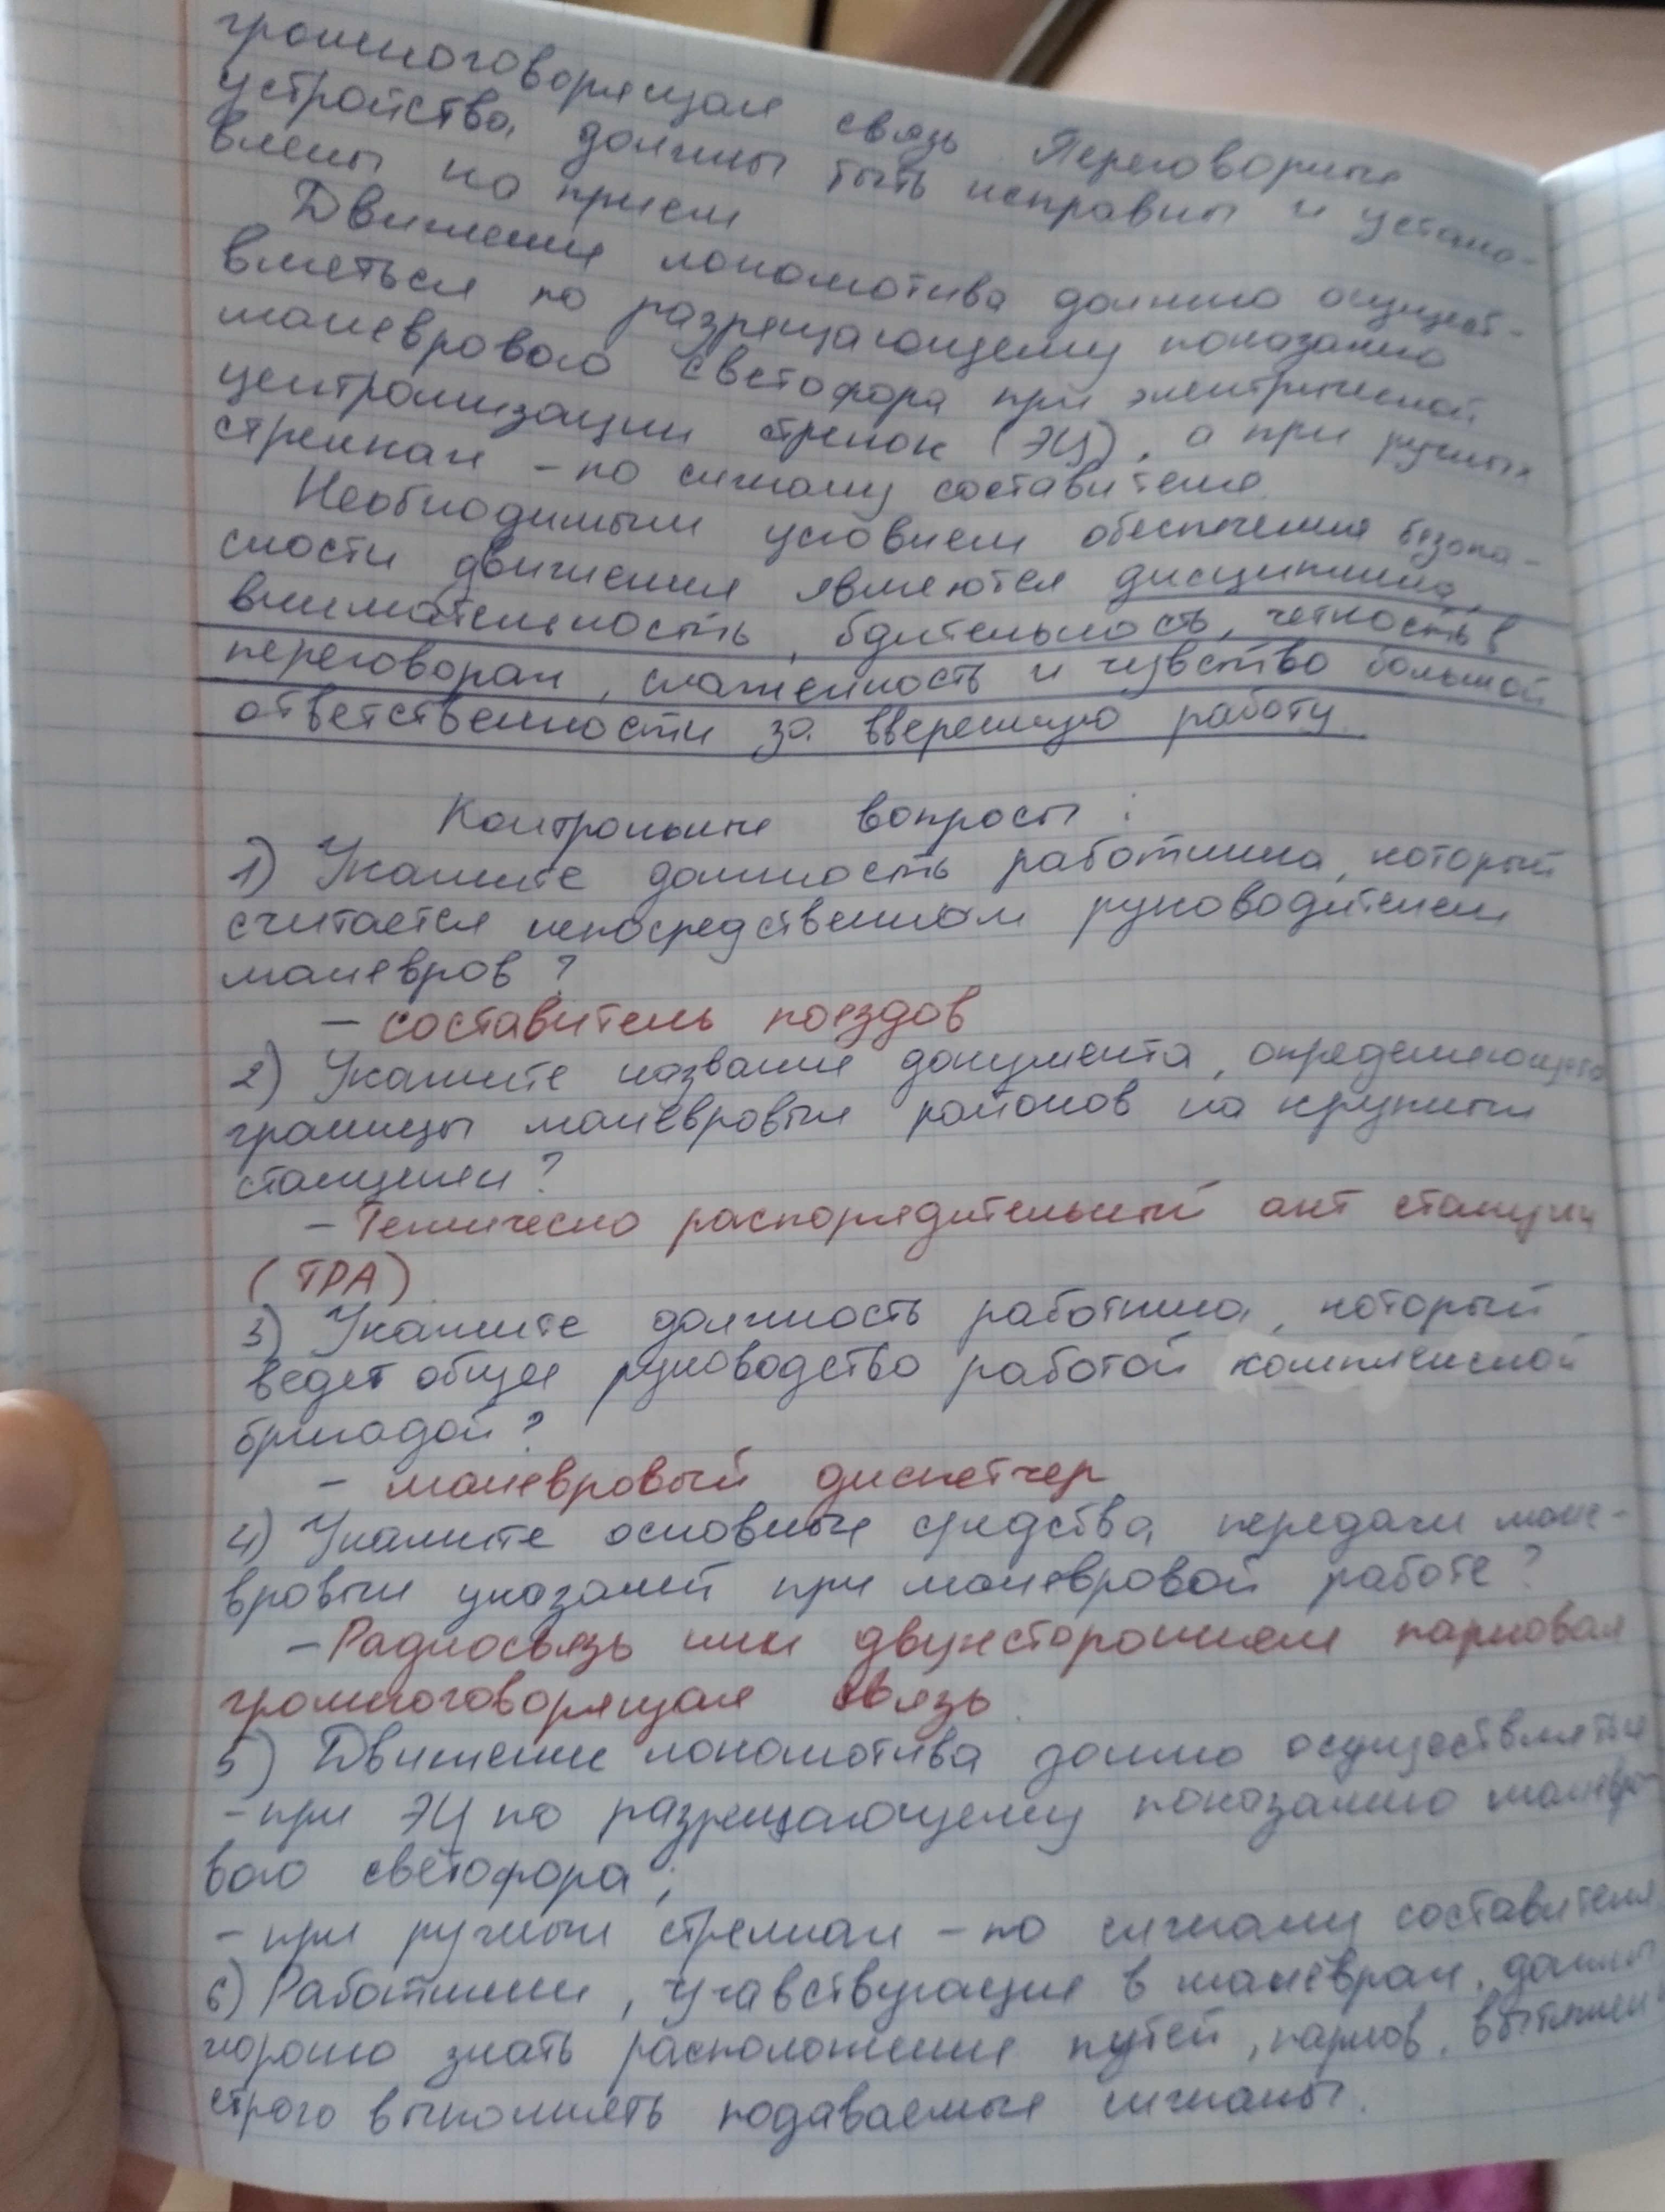 громкоговорящая связь. Переговорные
устройства должны быть исправны и устано-
влены на прием
Движение локомотива должно осущест-
вляться по разрещающему показанию
маневрового светофора при электрической
централизации стрелок (ЭЦ), а при ручных
стрелках - по сигналу составителя.
Необходимым условием обеспечения безопа-
сности движения являются дисциплина,
внимательность, бдительность, четкость в
переговорах, слаженность и чувство большой
ответственности за вверенную работу.
Контрольные вопросы:
1) Укажите должность работника, который
считается непосредственном руководителем
маневров?
- составитель поездов
2) Укажите название документа, определяющего
границы маневровых районов на крупных
станциях?
- Техническо распорядительный акт станции
(ТРА)
3) Укажите должность работника, который
ведет общее руководство работой комплексной
бригадой?
- маневровый диспетчер
4) Укажите основные средства передачи мане-
вровых указаний при маневровой работе?
- Радиосвязь или двухсторонняя парковая
громкоговорящая связь.
5) Движение локомотива должно осуществляться
- при ЭЦ по разрещающему показанию маневро-
вого светофора;
- при ручных стрелках - по сигналу составителя.
6) Работники, учавствующие в маневрах, должны
хорошо знать расположение путей, парков,
строго выполнять подаваемые сигналы.